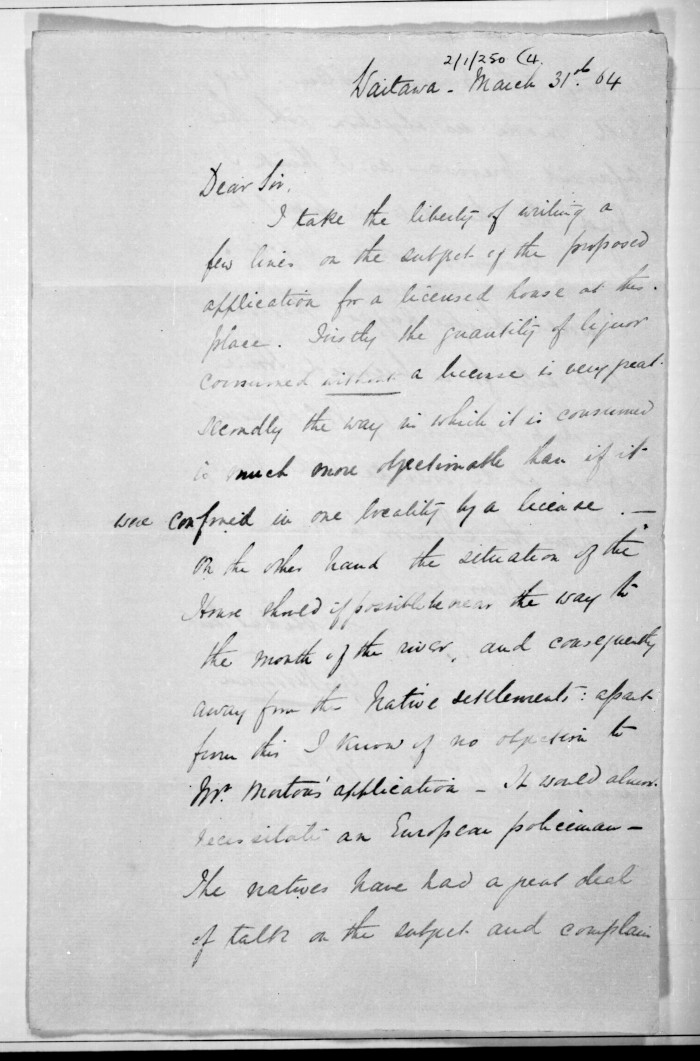 2/1/250 (4.
Waitawa - March 31st. 64
Dear Sir,
I take the liberty of writing a
few lines on the subject of the proposed
application for a licensed house at this
place. Firstly the quantity of liquor
consumed without a license is very great.
secondly the way in which it is consumed
is much more objectionable than if it
were confined in one locality by a license. —
On the other hand the situation of the
House should if possible be near the way to
the mouth of the river, and consequently
away from the Native settlements: apart
from this I know of no objection to
Mr. Morton's application - It would almost
necessitate an European policeman -
The natives have had a great deal
of talk on the subject and complain